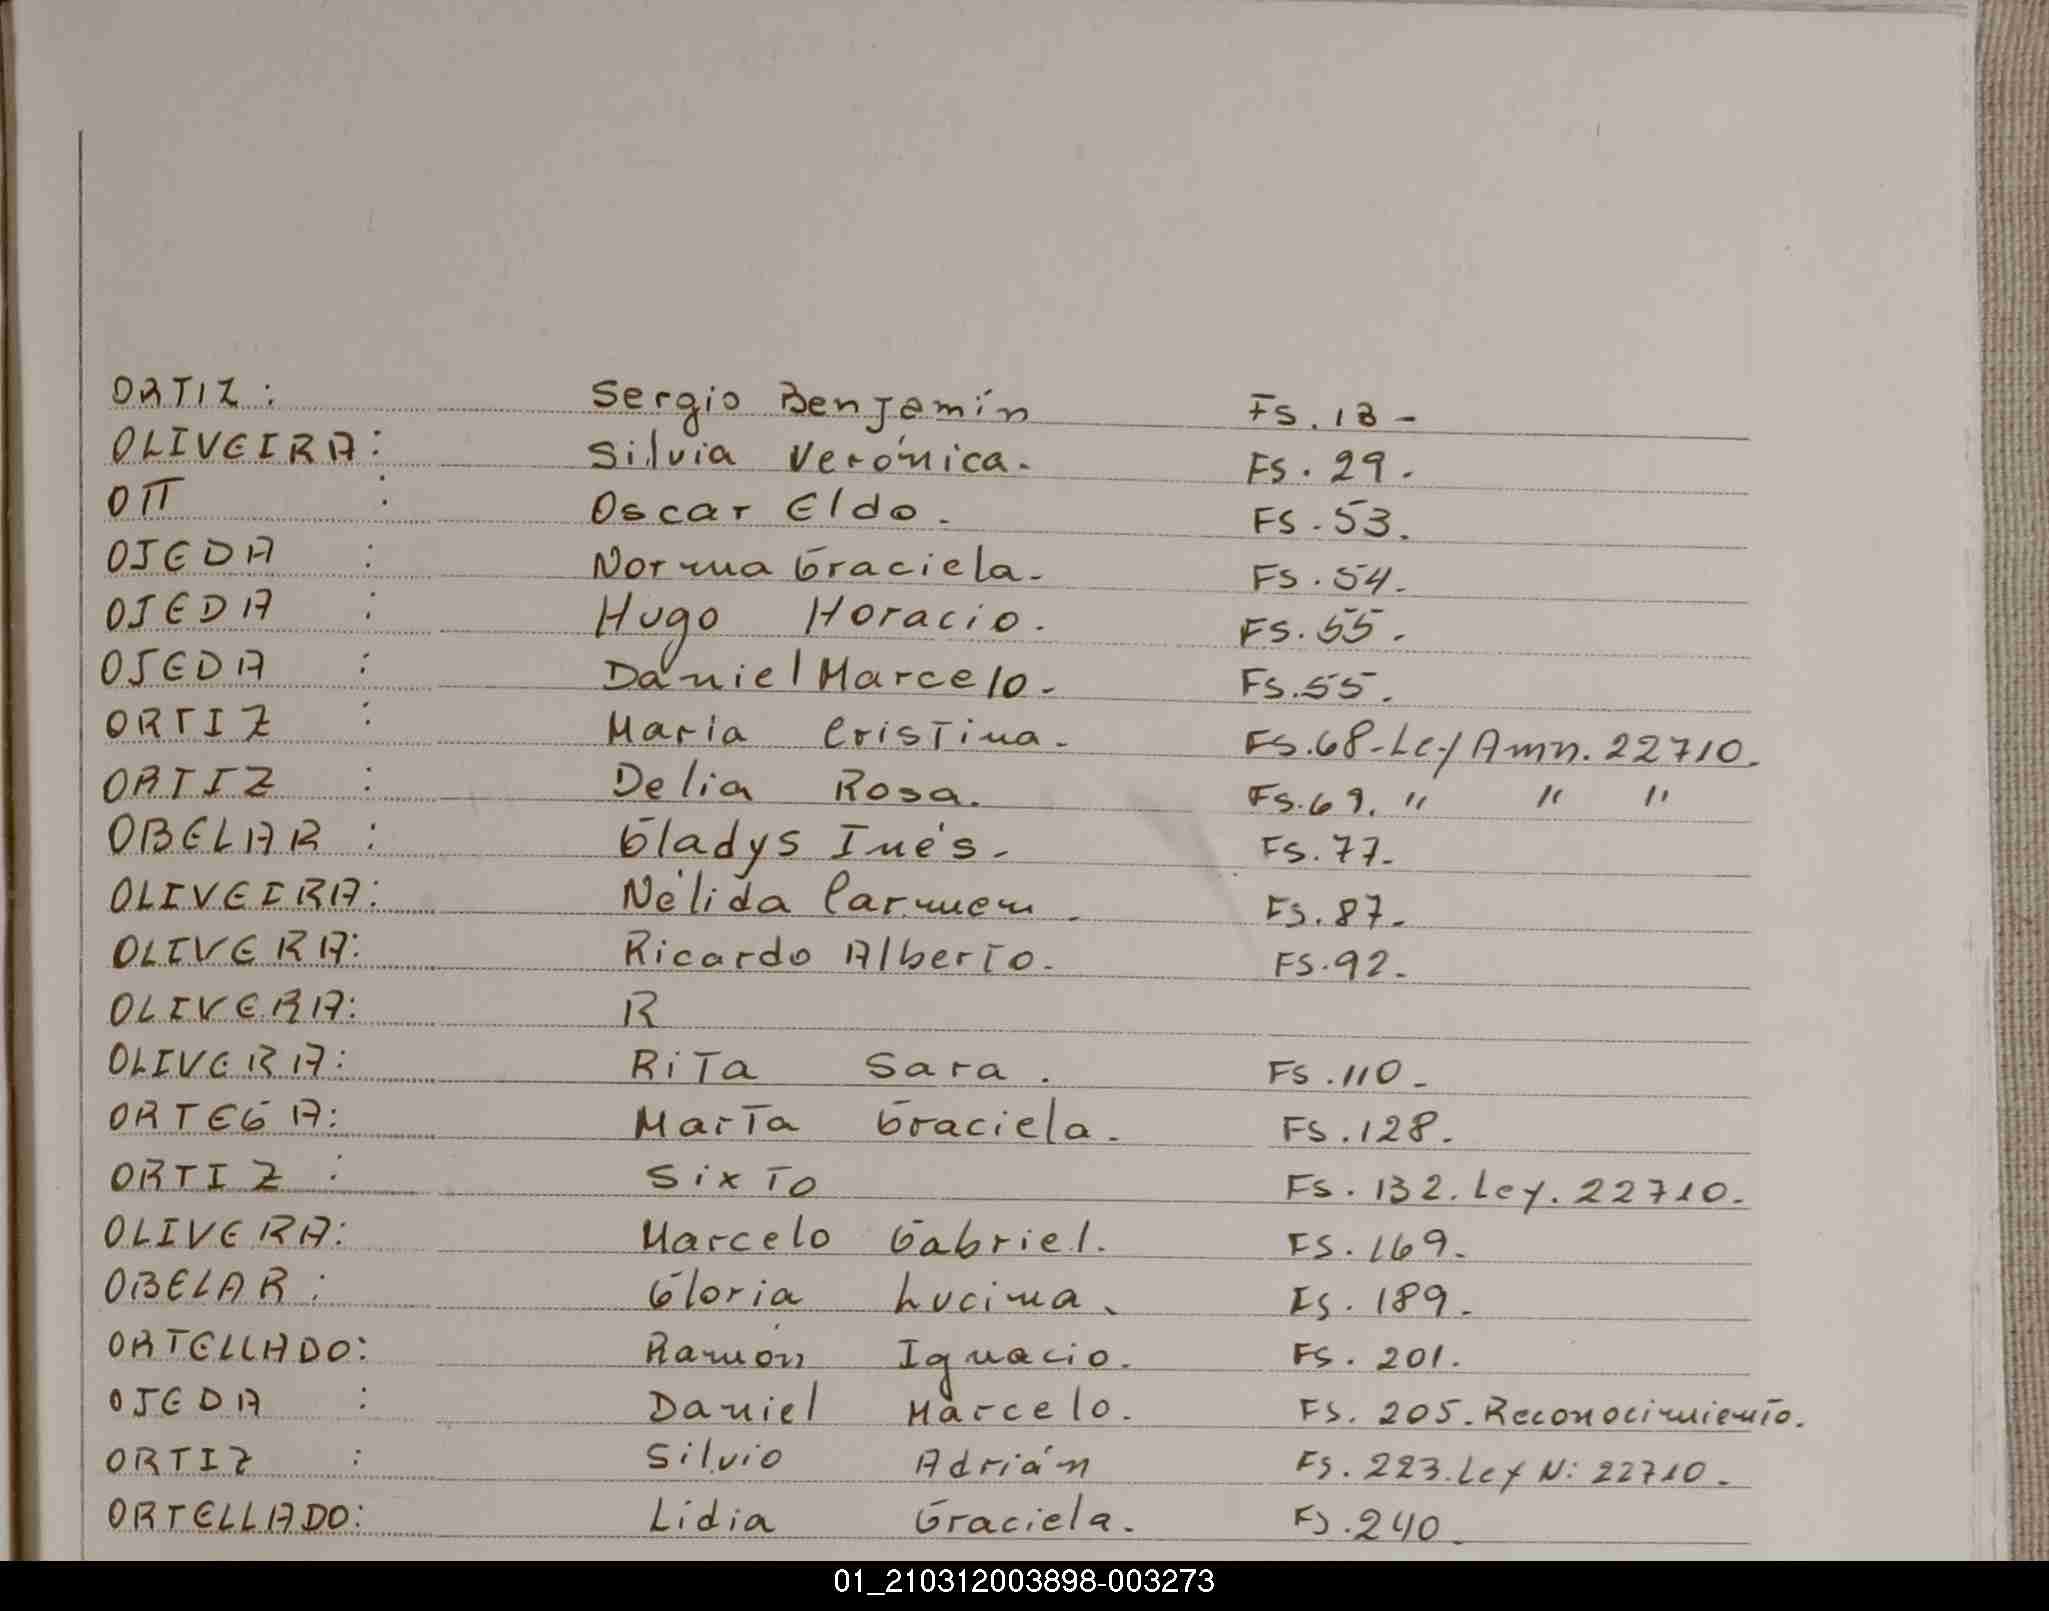 ORTIZ: Sergio Benjamín Fs. 13 -
OLIVEIRA: Silvia Verónica. Fs. 29.
OTT : Oscar Eldo. Fs. 53.
OJEDA : Norma Graciela. Fs. 54.
OJEDA : Hugo Horacio. Fs. 55.
OJEDA : Daniel Marcelo. Fs. 55.
ORTIZ : María Cristina. Fs. 68-Ley Amn. 22710.
ORTIZ : Delia Rosa. Fs. 69. " " "
OBELAR : Gladys Inés. Fs. 77.
OLIVEIRA: Nélida Carmen. Fs. 87.
OLIVERA: Ricardo Alberto. Fs. 92.
OLIVERA: R
OLIVERA: Rita Sara. Fs. 110.
ORTEGA: Marta Graciela. Fs. 128.
ORTIZ : Sixto Fs. 132. Ley. 22710.
OLIVERA: Marcelo Gabriel. Fs. 169.
OBELAR: Gloria Lucina. Fs. 189.
ORTELLADO: Ramón Ignacio. Fs. 201.
OJEDA : Daniel Marcelo. Fs. 205. Reconocimiento.
ORTIZ : Silvio Adrián Fs. 223. Ley N: 22710.
ORTELLADO: Lidia Graciela. Fs. 240.
01_210312003898-003273